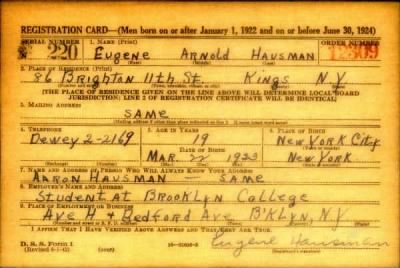 REGISTRATION CARD—(Men born on or after January 1, 1922 and on or before June 30, 1924)
SERIAL NUMBER 1. NAME (Print) ORDER NUMBER
N 220 Eugene Arnold Hausman 12309
(First) (Middle) (Last)
2. PLACE OF RESIDENCE (Print)
86 Brighton 11th St. Kings N.Y.
(Number and street) (Town, township, village, or city) (County) (State)
[THE PLACE OF RESIDENCE GIVEN ON THE LINE ABOVE WILL DETERMINE LOCAL BOARD
JURISDICTION; LINE 2 OF REGISTRATION CERTIFICATE WILL BE IDENTICAL]
3. MAILING ADDRESS
SAME
[Mailing address if other than place indicated on line 2. If same insert word same]
4. TELEPHONE 5. AGE IN YEARS 6. PLACE OF BIRTH
Dewey 2-2169 19 New York City
DATE OF BIRTH
MAR. 22 1923 New York
7. NAME AND ADDRESS OF PERSON WHO WILL ALWAYS KNOW YOUR ADDRESS
Aaron Hausman — SAME
8. EMPLOYER'S NAME AND ADDRESS
Student At Brooklyn College
9. PLACE OF EMPLOYMENT OR BUSINESS
Ave H & Bedford Ave B'KLYN, N.Y
I AFFIRM THAT I HAVE VERIFIED ABOVE ANSWERS AND THAT THEY ARE TRUE.
D. S. S. Form 1
(Revised 6-1-42)
Eugene Hausman